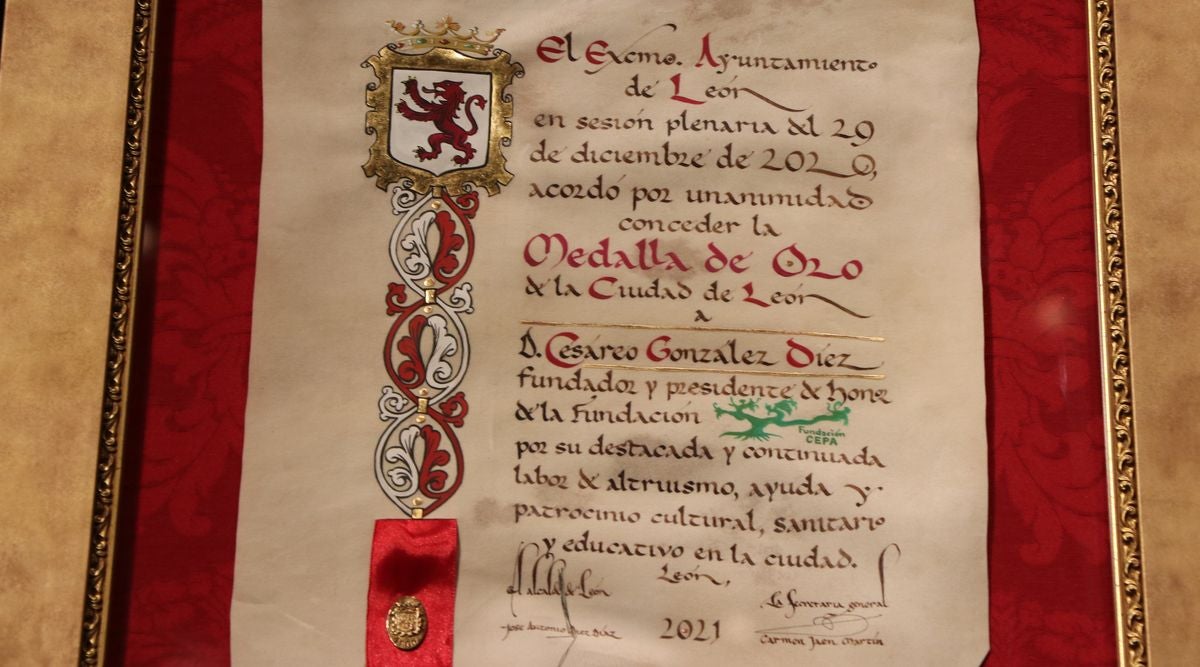 El Excmo. Ayuntamiento
de León
en sesión plenaria del 29
de diciembre de 2020,
acordó por unanimidad
conceder la
Medalla de Oro
de la Ciudad de León
a
D. Cesáreo González Díez
fundador y presidente de honor
de la Fundación
Fundación
CEPA
por su destacada y continuada
labor de altruismo, ayuda y
patrocinio cultural, sanitario
y educativo en la ciudad.
León,
El alcalde de León
La Secretaria general
José Antonio Diez Díaz
2021
Carmen Jaén Martín